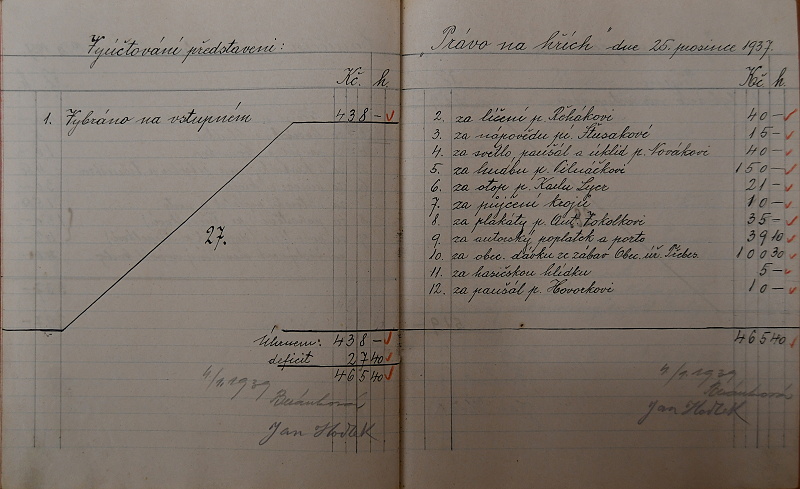 Vyúčtování představení:
Kč. h.
1. Vybráno na vstupném 438 -
27.
Úhrnem: 438 -
deficit 27 40
465 40
4/1. 1939
Jan Hodek
„Právo na hřích" dne 25. prosince 1937.
Kč. h.
2. za líčení p. Řehákovi 40 -
3. za nápovědu pí. 15 -
4. za světlo, paušál a úklid p. Novákovi 40 -
5. za hudbu p. 150 -
6. za otop p. Karlu 21 -
7. za půjčení krojů 10 -
8. za plakáty p. Ant. 35 -
9. za autorský poplatek a porto 39 10
10. za obec. dávku ze zábav Obec. úř. Třebes. 100 30
11. za hasičskou hlídku 5 -
12. za paušál p. 10 -
465 40
4/1. 1939
Jan Hodek